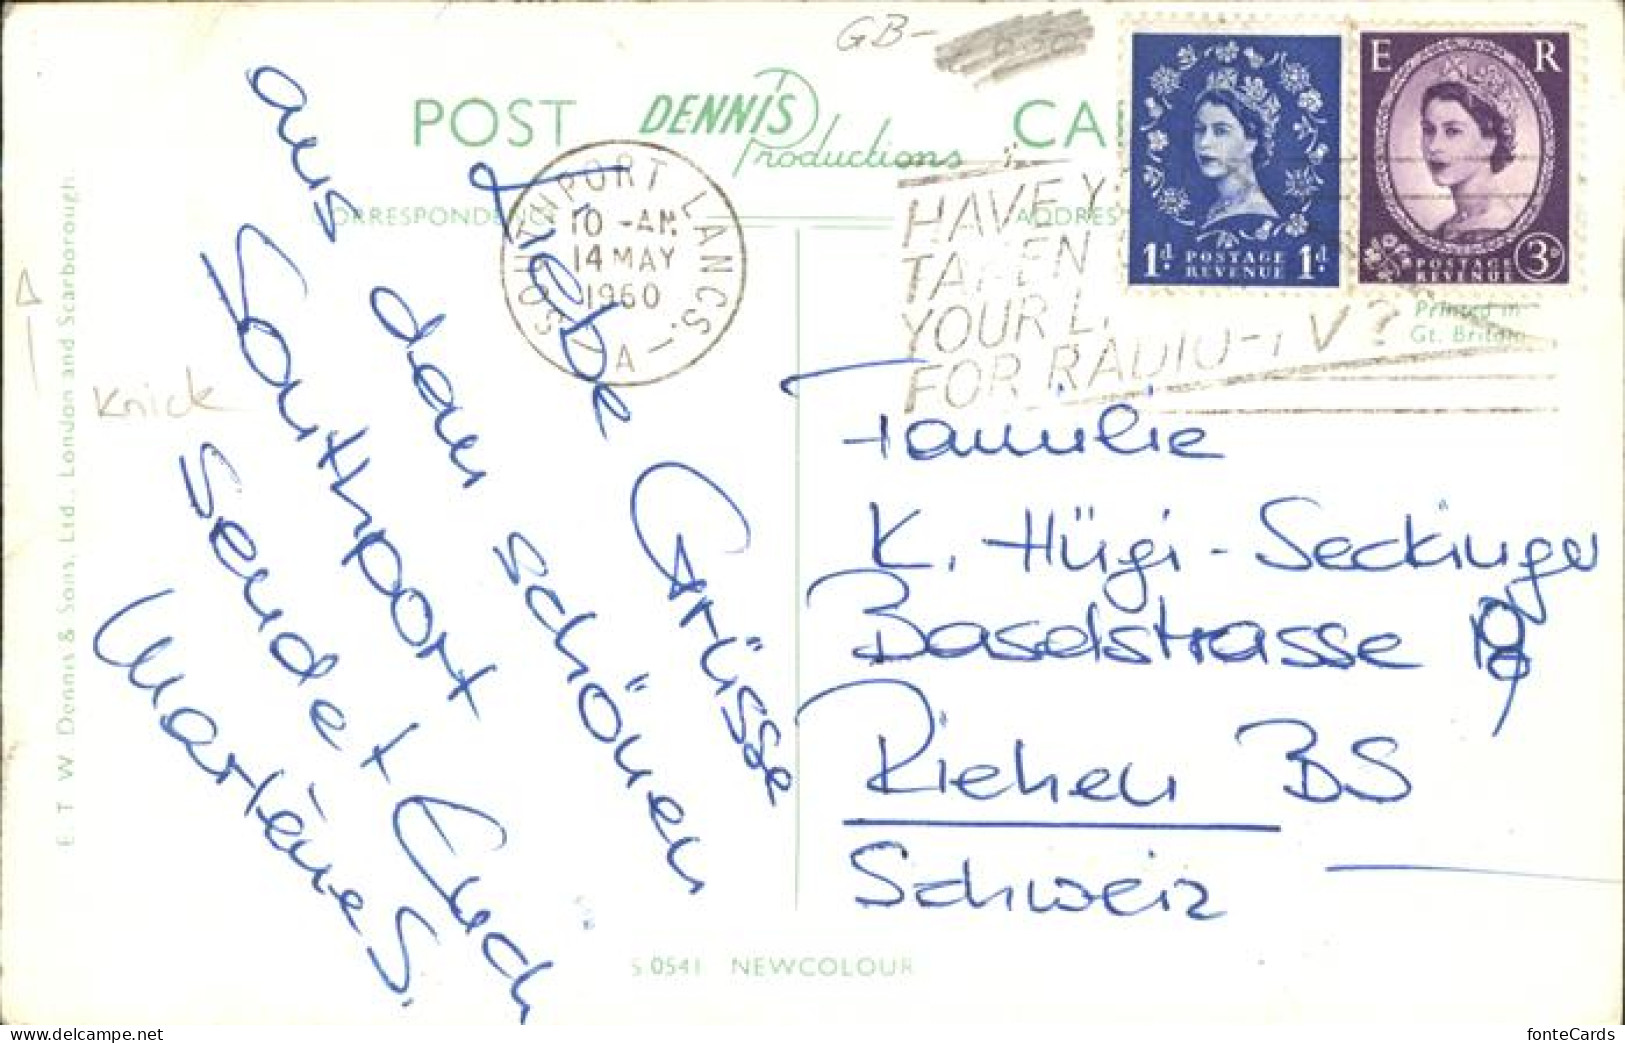 GB-
POST DENNIS Productions CA
CORRESPONDENCE ADDRES
SOUTHPORT LANCS.
10-AM
14 MAY
1960
A
HAVE Y
TAKEN
YOUR L
FOR RADIO-TV?
1d. POSTAGE REVENUE 1d.
E R
POSTAGE REVENUE 3D
Printed in
Gt. Britain
Liebe Grüsse
aus dem schönen
Southport
sendet Euch
Marlène S.
Familie
K. Hügi-Seckinger
Baselstrasse
Riehen BS
Schweiz
Knick
E. T. W. Dennis & Sons, Ltd., London and Scarborough.
S.0541 NEWCOLOUR
fonteCards
www.delcampe.net